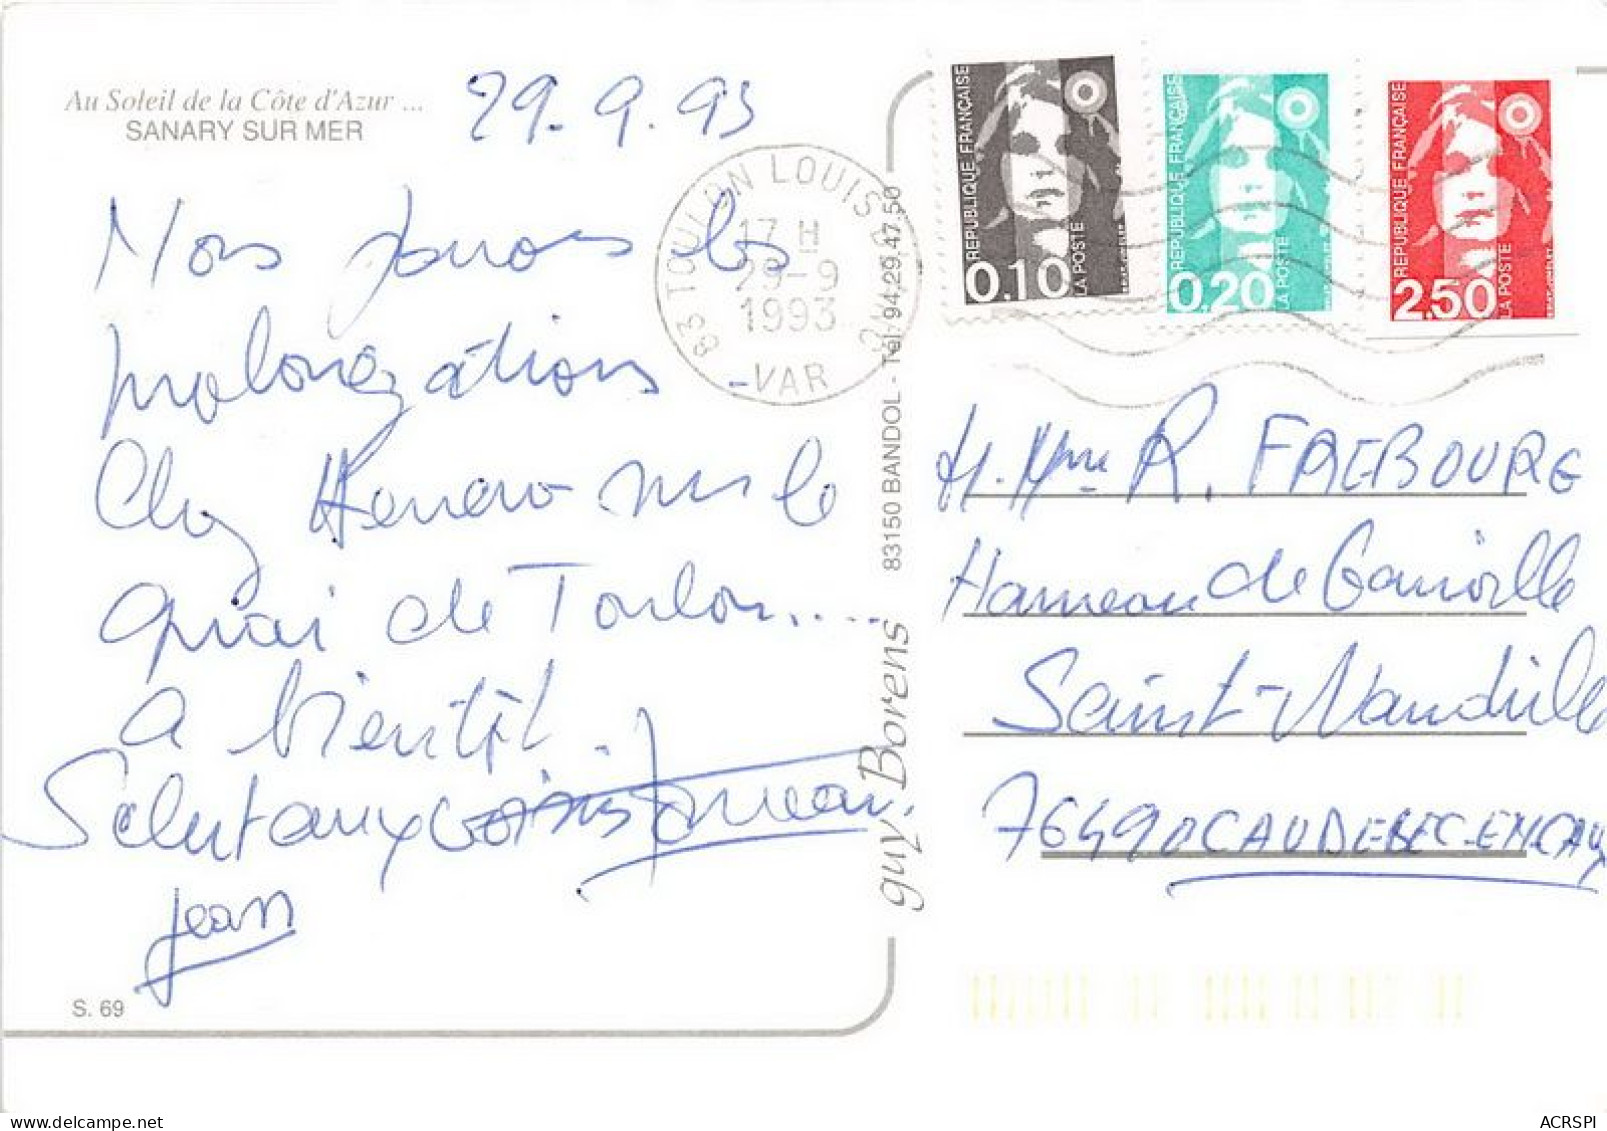 Au Soleil de la Côte d'Azur ...
SANARY SUR MER
29.9.93
Nous jouons les
prolongations
chez sur le
quai de Toulon.....
a bientôt.
Salut aux voisins
Jean
S. 69
guy Borens 83150 BANDOL - Tel. 94.29.47.50
83 TOULON LOUIS
17 H
29-9
1993
-VAR
REPUBLIQUE FRANÇAISE
0.10
LA POSTE
REPUBLIQUE FRANÇAISE
0,20
LA POSTE
REPUBLIQUE FRANÇAISE
2,50
LA POSTE
M. Mme R. FAEBOURG
Hameau de
Saint-Wandrille
76490 CAUDEBEC-EN-CAUX
ACRSPI